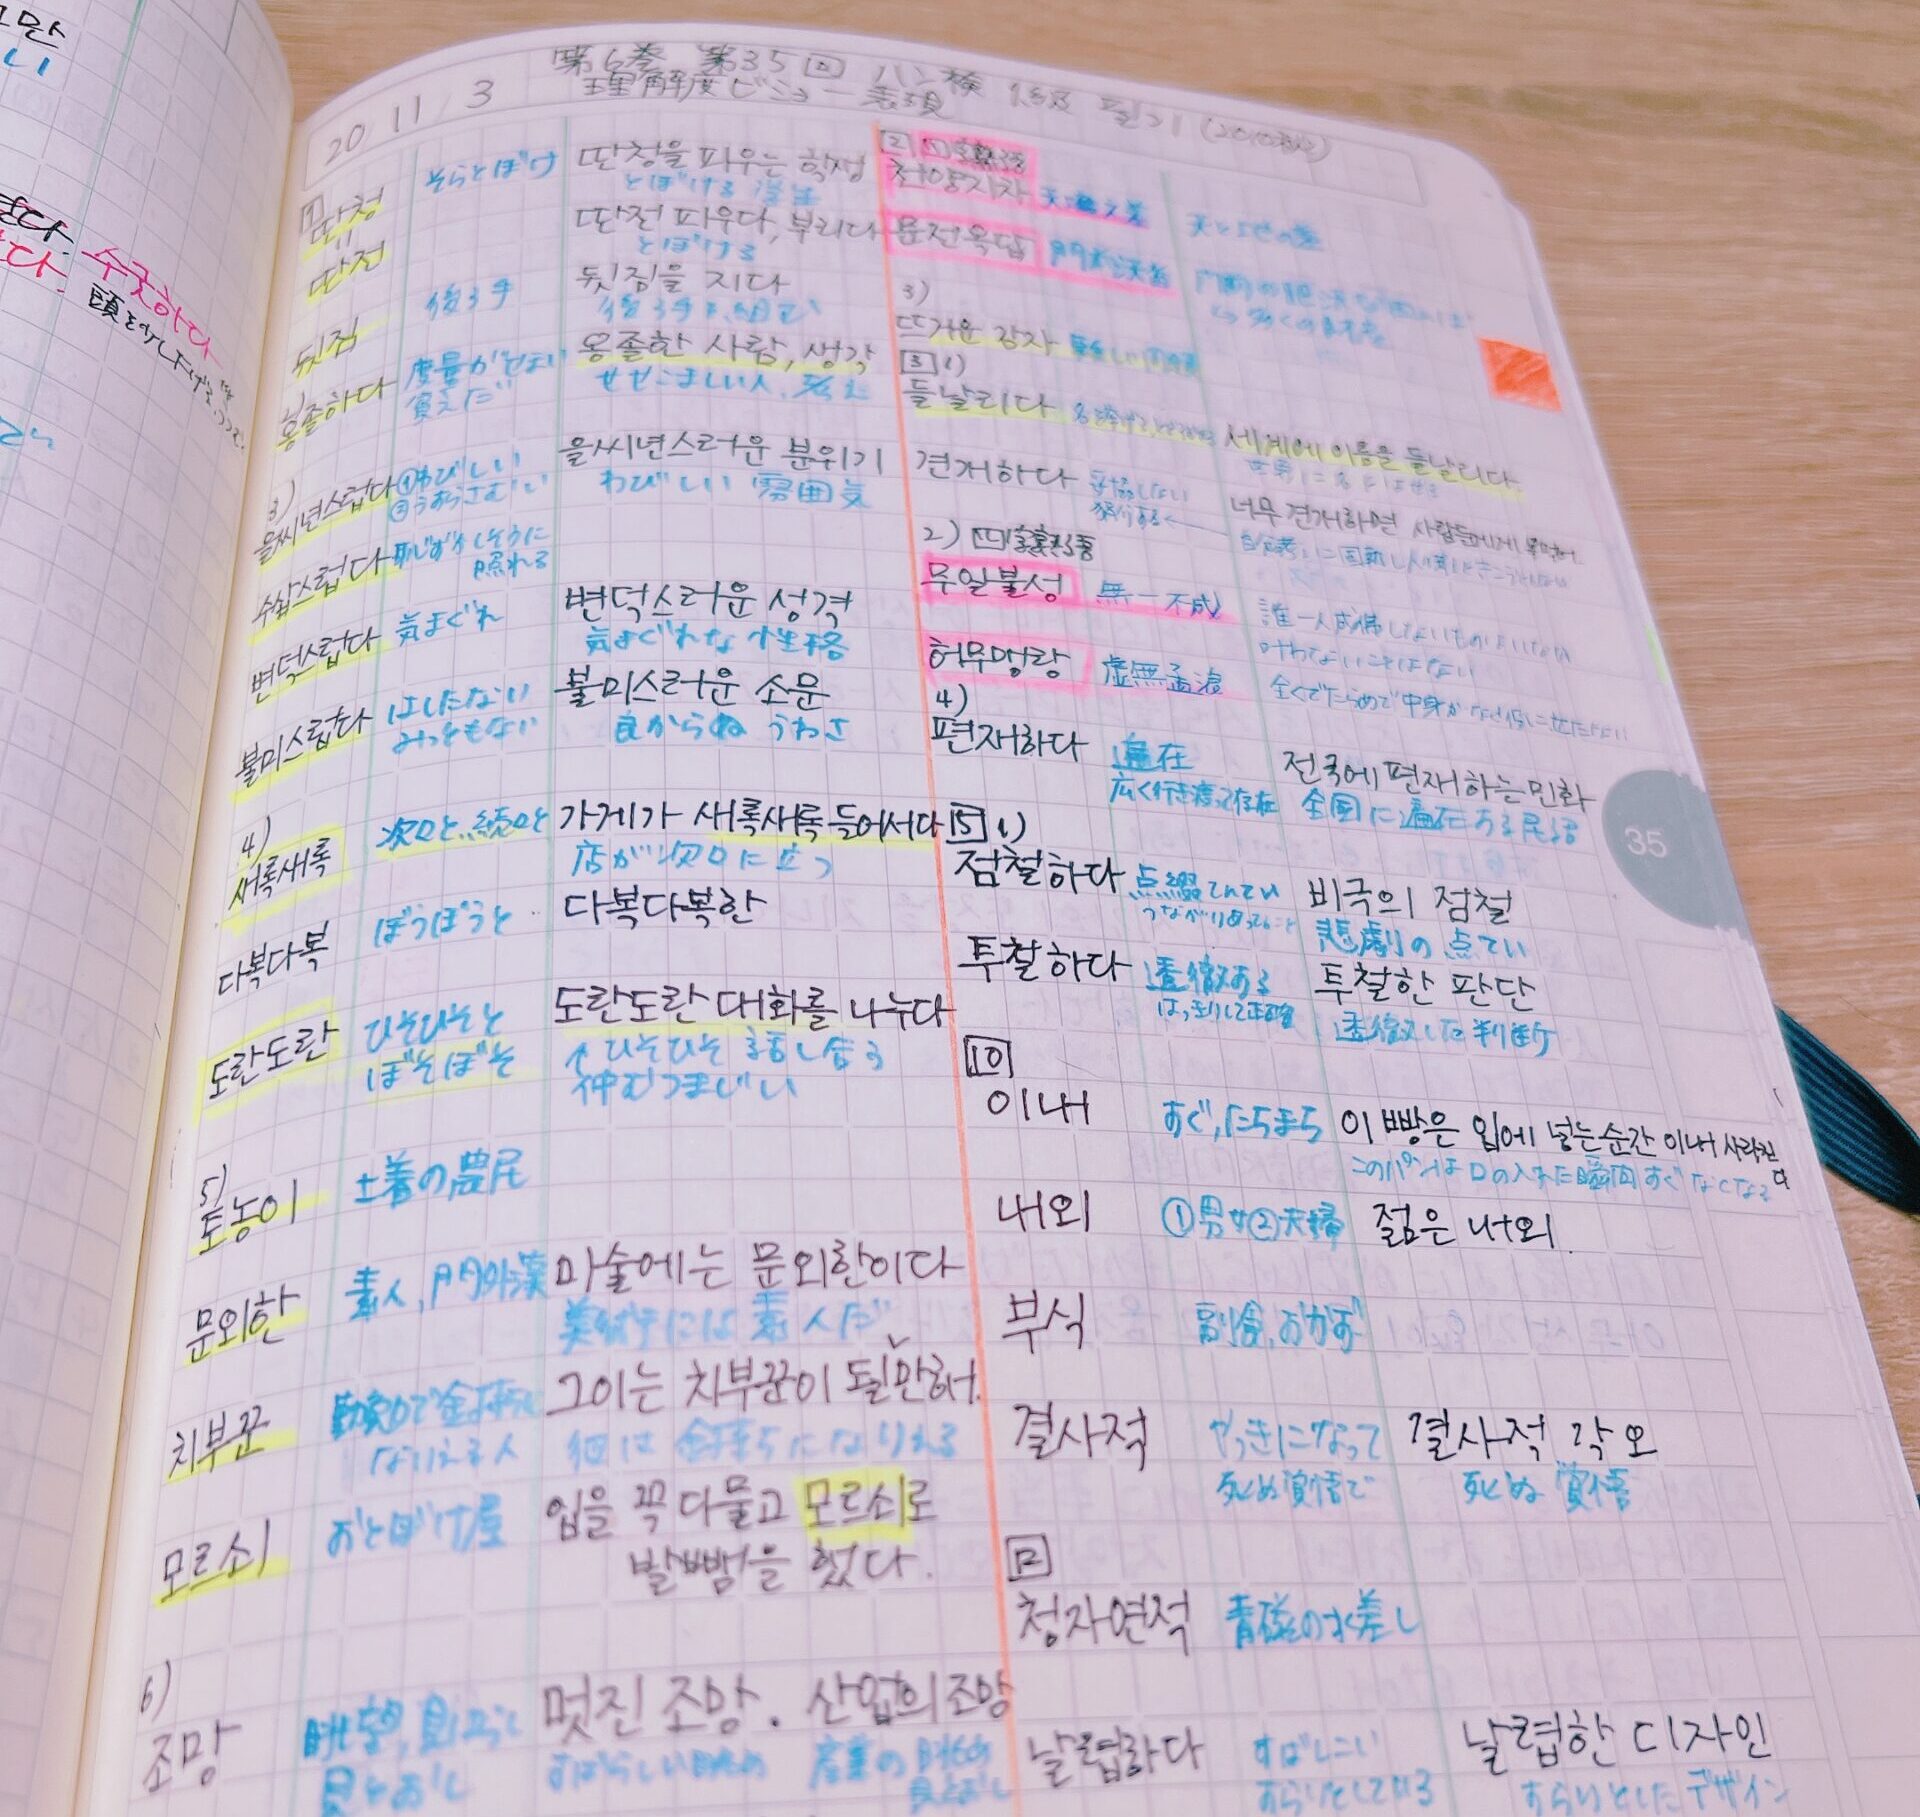 수굿하다
20 11/3
第6巻 第35回 ハン検 1級 필기 (2010秋)
理解度ビュー 表現
1
딴청
そらとぼけ
딴청을 피우는 학생
とぼける 学生
"
딴전
딴전 피우다, 부리다
とぼける
뒷짐
後ろ手
뒷짐을 지다
後ろ手を組む
옹졸하다
度量がせまい
옹졸한 사람, 생각
せせこましい人、考え
3)
을씨년스럽다
①わびしい
②うすらさむい
을씨년스러운 분위기
わびしい 雰囲気
수삽스럽다
恥ずかしそうに
照れる
변덕스럽다
気まぐれ
변덕스러운 성격
気まぐれな 性格
불미스럽다
はしたない
みっともない
불미스러운 소문
良からぬ うわさ
4)
새록새록
次々と、続々と
가게가 새록새록 들어서다
店が次々に立つ
다복다복
ぼうぼうと
다복다복한
도란도란
ひそひそと
ぼそぼそ
도란도란 대화를 나누다
↑ひそひそ 話し合う
仲むつまじい
5)
토농이
土着の農民
문외한
素人, 門外漢
마술에는 문외한이다
美術には素人だ
치부꾼
勤勉で金持ちに
なりえる人
그이는 치부꾼이 될만해.
彼は 金持ちになりえる
모르쇠
おとぼけ屋
입을 꼭 다물고 모르쇠로
발뺌을 했다.
6)
조망
眺望, 見晴らし
見とおし
멋진 조망. 산업의 조망
すばらしい眺め 産業の眺め
見とおし
2 1) 四字熟語
천양지차
天壌之差
天と地の差
문전옥답
門前沃畓
3)
뜨거운 감자
難しい問題
3 1)
들날리다
세계에 이름을 들날리다.
견개하다
妥協しない
너무 견개하면 사람들에게
2) 四字熟語
무일불성
無一不成
叶わないことはない
허무맹랑
虚無孟浪
全くでたらめで中身がなく
4)
편재하다
遍在
広く行き渡って存在
전국에 편재하는 민화
全国に遍在する民話
5 1)
점철하다
点綴てんてい
つながりあっていること
비극의 점철
悲劇の点てい
투철하다
透徹する
はっきりして正確
투철한 판단
透徹した判断
10
이내
すぐ, たちまち
이 빵은 입에 넣는 순간 이내 사라진다
このパンは口の入れた瞬間すぐなくなる
내외
①男女②夫婦
젊은 내외.
부식
副食, おかず
결사적
やっきになって
死ぬ覚悟で
결사적 각오
死ぬ 覚悟
12
청자연적
青磁の水差し
날렵하다
すばしこい
すらりとしている
날렵한 디자인
すらりとした デザイン
35